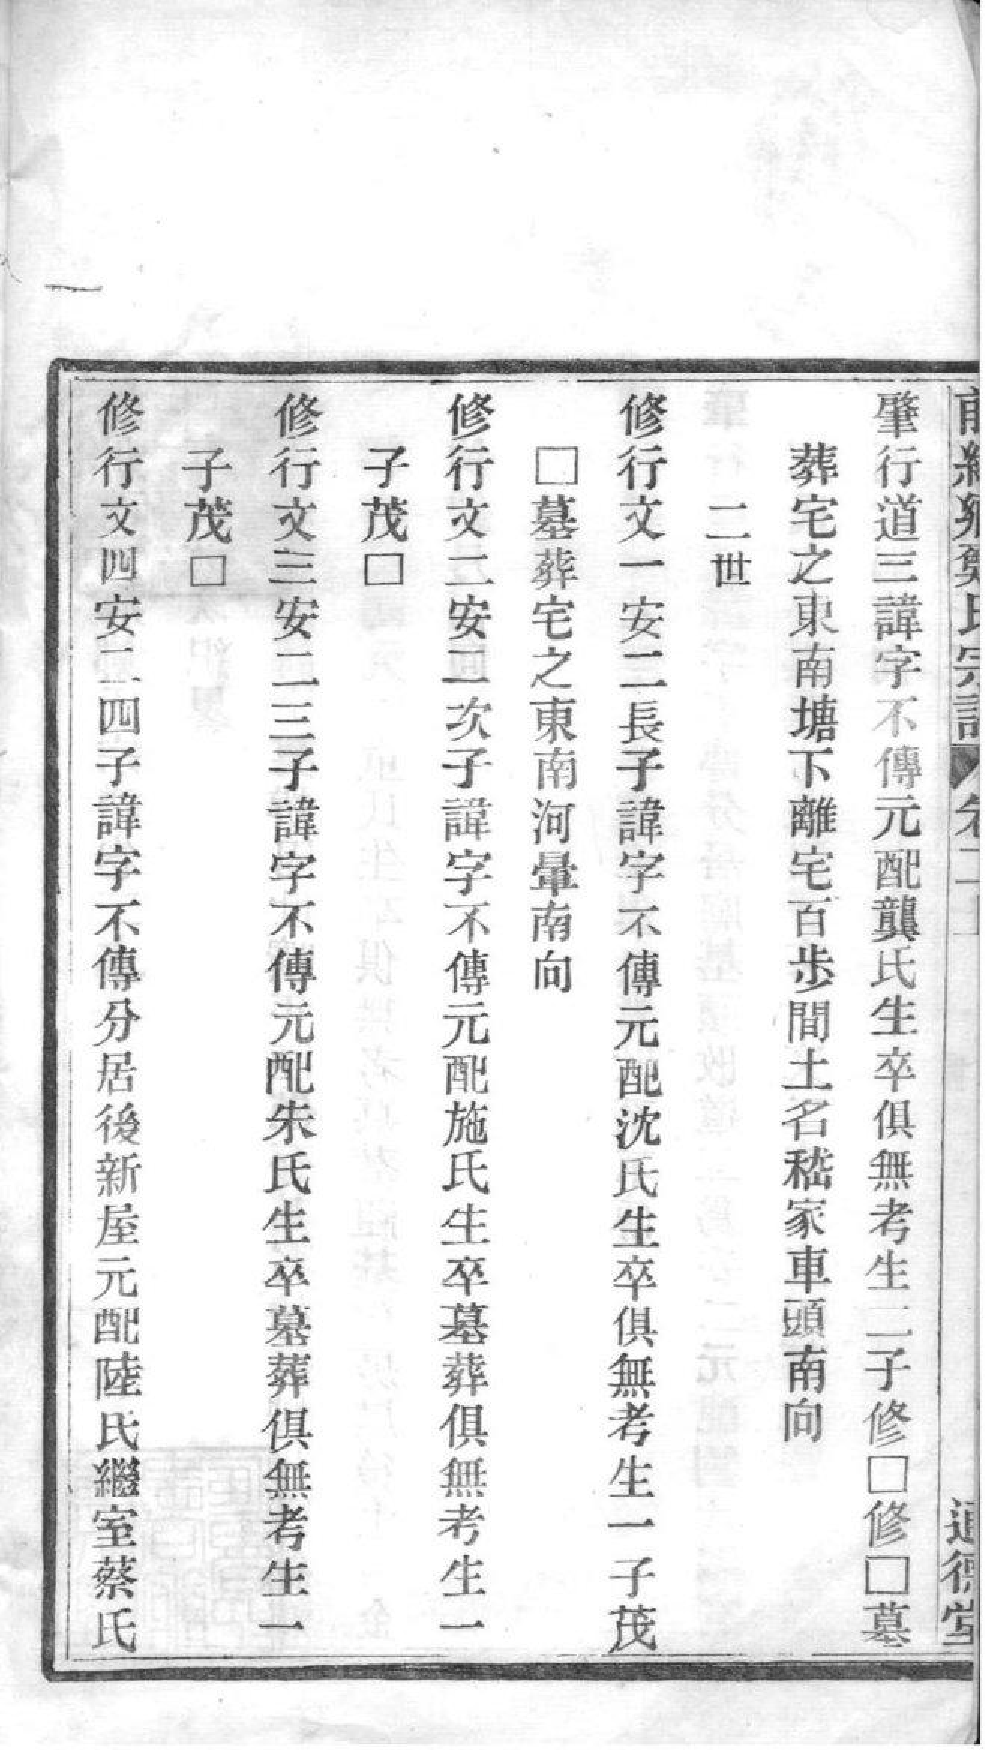 氏宗譜 卷二上 道德堂
肇行道三諱字不傳元配龔氏生卒俱無考生二子修□修□墓
葬宅之東南塘下離宅百步間土名嵇家車頭南向
二世
修行文一安二長子諱字不傳元配沈氏生卒俱無考生一子茂
□墓葬宅之東南河暈南向
修行文二安二次子諱字不傳元配施氏生卒墓葬俱無考生一
子茂□
修行文三安二三子諱字不傳元配朱氏生卒墓葬俱無考生一
子茂□
修行文四安二四子諱字不傳分居後新屋元配陸氏繼室蔡氏